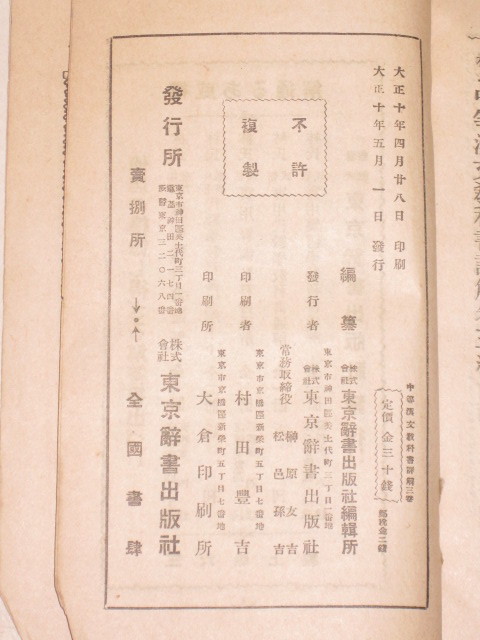 大正十年四月廿八日印刷
大正十年五月一日發行
中等漢文教科書詳解三卷
定價金三十錢
郵税金二錢
不許
複製
編纂
株式會社東京辭書出版社編輯所
東京市神田區美土代町三丁目一番地
發行者
株式會社東京辭書出版社
常務取締役
榊原友吉
松邑孫吉
東京市京橋區新榮町五丁目七番地
印刷者
村田豐吉
東京市京橋區新榮町五丁目七番地
印刷所
大倉印刷所
發行所
東京市神田區美土代町三丁目一番地
電話神田二一七四番
振替東京三二〇六八番
株式會社東京辭書出版社
賣捌所
全國書肆